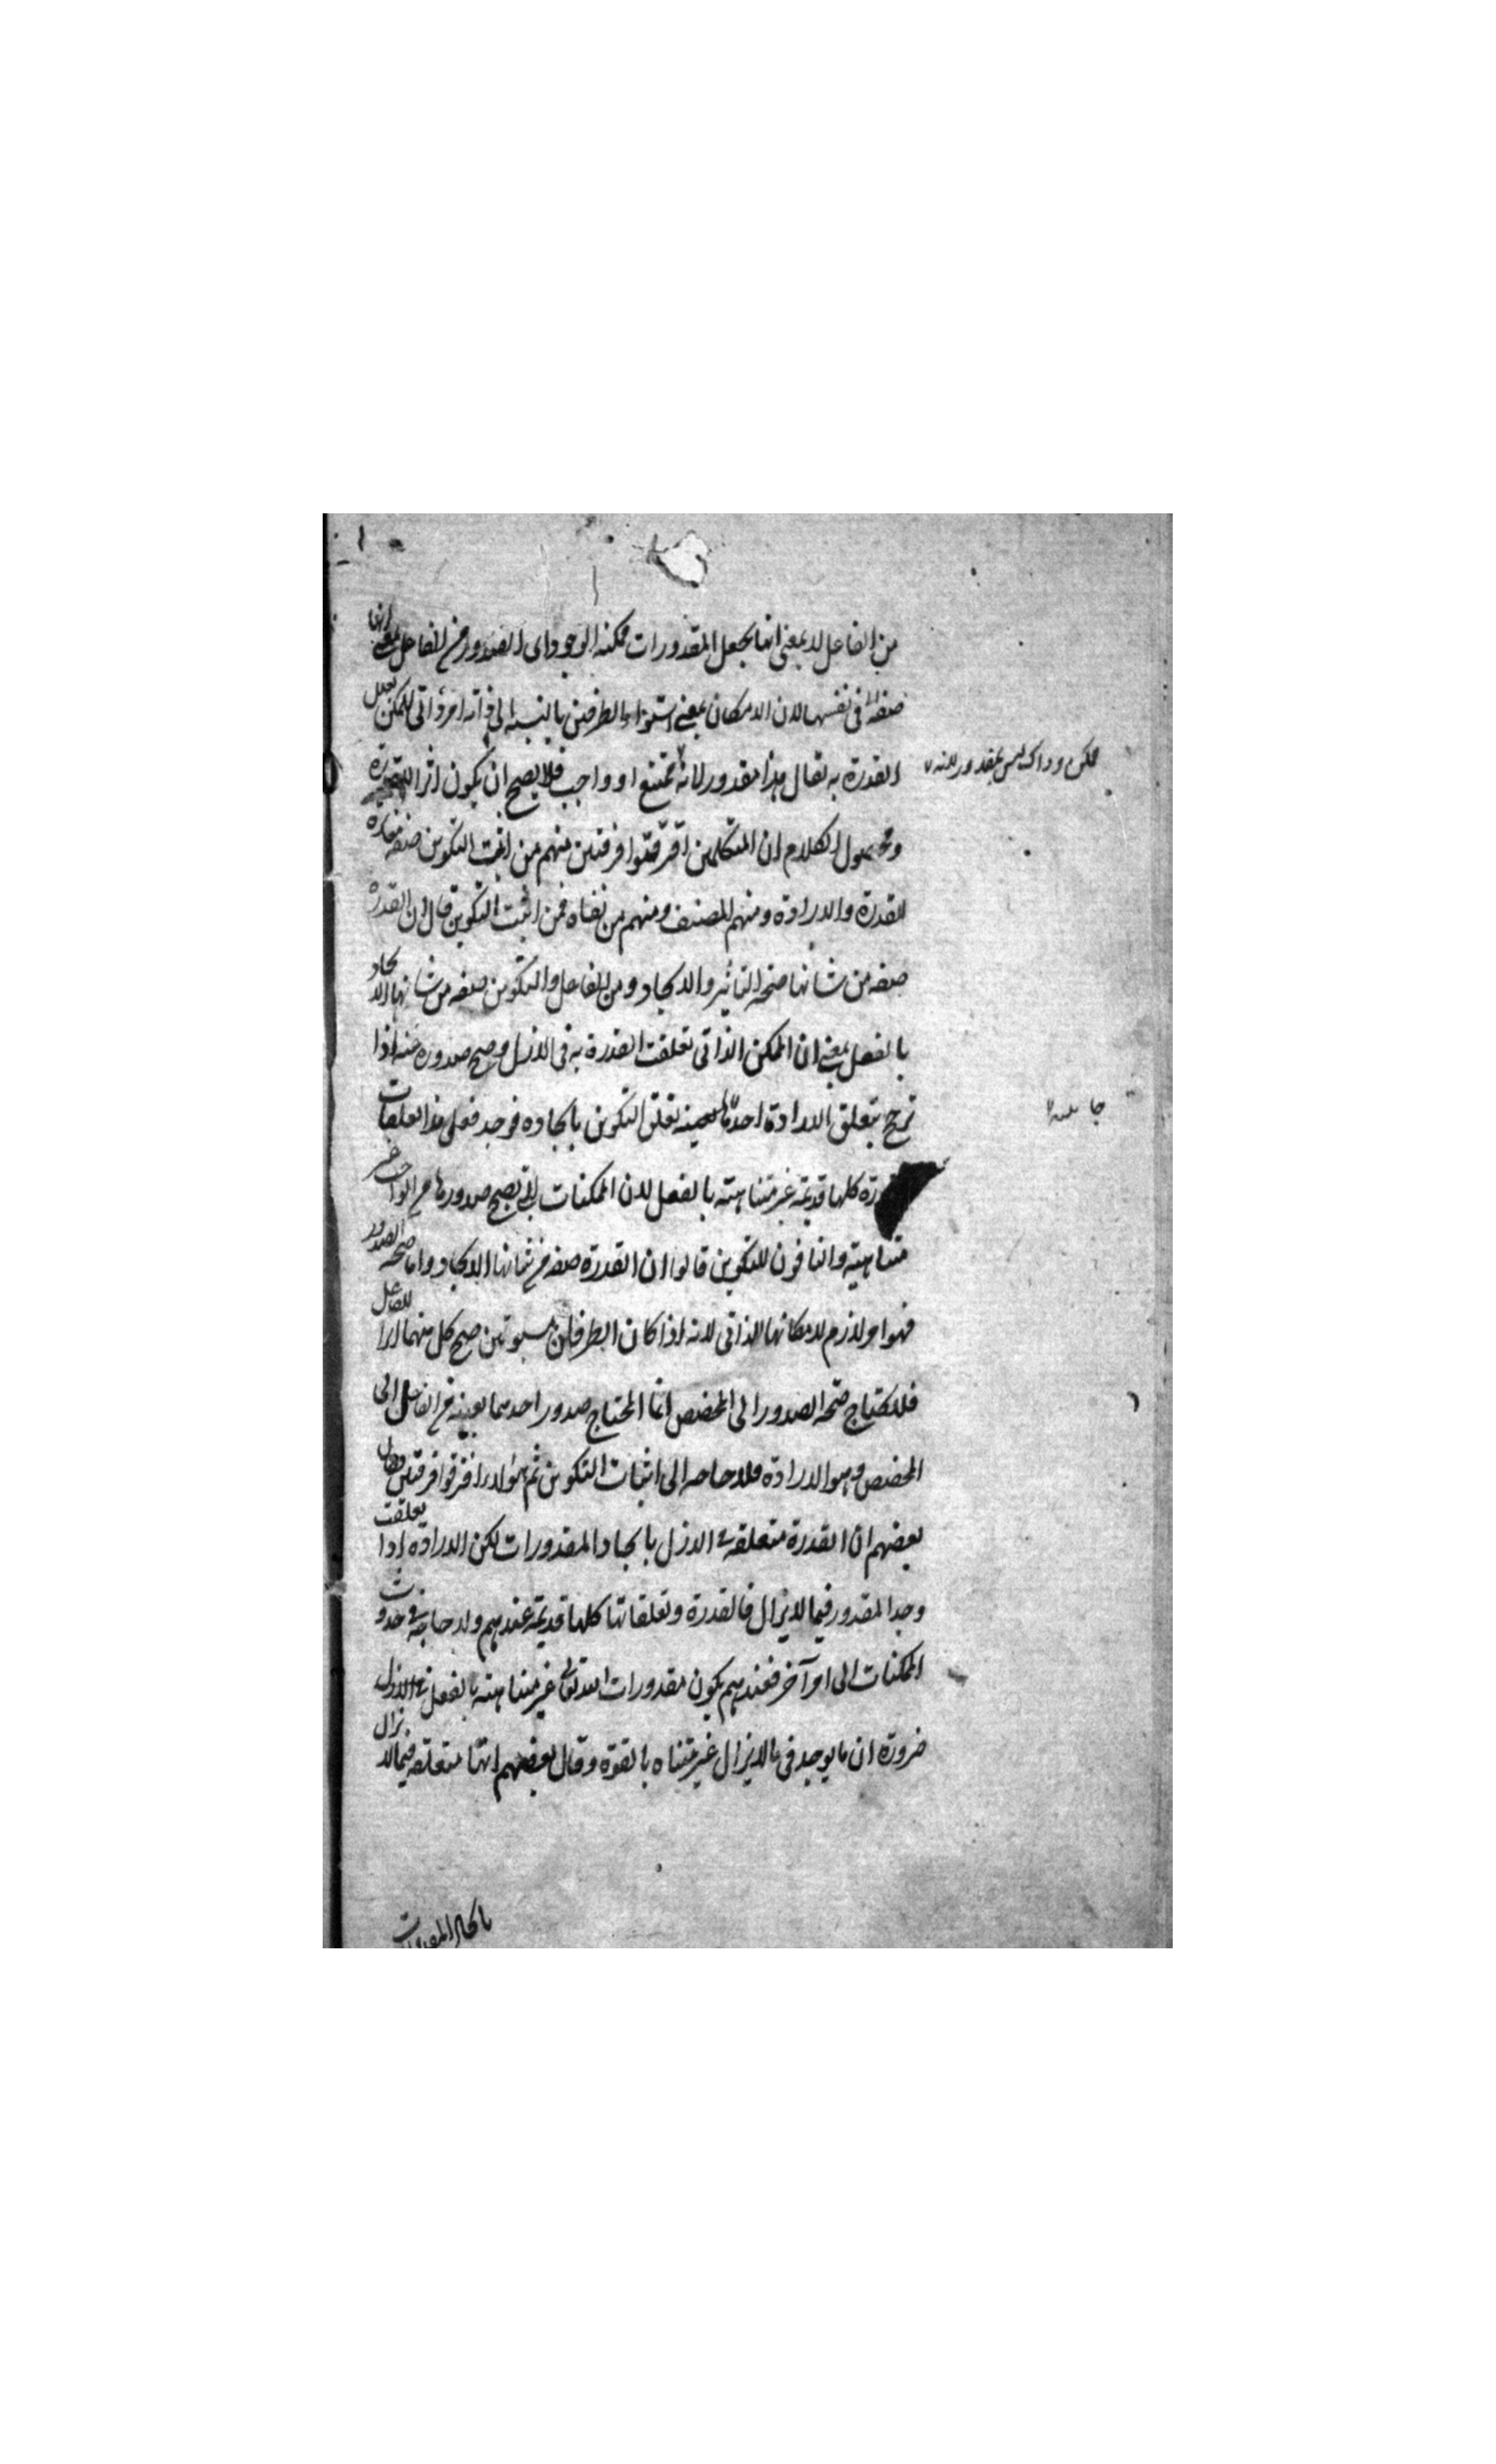 من الفاعل لا بمعنى انها يجعل المقدورات ممكنة الوجود اى الصدور من الفاعل بمعنى انها
صفة فى نفسها لان الامكان بمعنى استواء الطرفين بالنسبة الى ذاته امر ذاتى للممكن يعلل
القدرة به يقال هذا مقدور لانه ممتنع او واجب فلا يصح ان يكون اثرا للقدرة
ممكن وذاك ليس بمقدور لانه
ومحصول الكلام ان المتكلمين افترقوا فرقتين منهم من اثبت التكوين صفة مغايرة
للقدرة والارادة ومنهم المصنف ومنهم من نفاه فمن اثبت التكوين قال ان القدرة
صفة من شانها صحة التاثير والايجاد ومن الفاعل والتكوين صفة من شانها الايجاد
بالفعل بمعنى ان الممكن الذاتى تعلقت القدرة به فى الازل وصح صدوره عنه اذا
ترجح بتعلق الارادة احد تعلق التكوين بايجاده فوجد فعلى هذا تعلقات
جانبيه
القدرة كلها قديمة غير متناهية بالفعل لان الممكنات التى يصح صدورها من الواجب غير
متناهية والنافون للتكوين قالوا ان القدرة صفة من شانها الايجاد واما صحة الصدور
فهو امر لازم لامكانها الذاتى لانه اذا كان الطرفان مستويين صح كل منهما للفاعل
فلا يحتاج صحة الصدور الى المخصص انما المحتاج صدور احدهما بعينه من الفاعل الى
المخصص وهو الارادة فلا حاجة الى اثبات التكوين ثم هؤلاء افترقوا فرقتين فقال
بعضهم ان القدرة متعلقة فى الازل بايجاد المقدورات لكن الارادة اذا تعلقت
وجد المقدور فيما لا يزال فالقدرة وتعلقاتها كلها قديمة عندهم ولا حاجة فى حدوث
الممكنات الى امر آخر فعندهم يكون مقدورات الله تعالى غير متناهية بالفعل فى الازل
ضرورة ان ما يوجد فى ما لا يزال غير متناه بالقوة وقال بعضهم انها متعلقة فيما لا يزال
بايجاد المقدورات